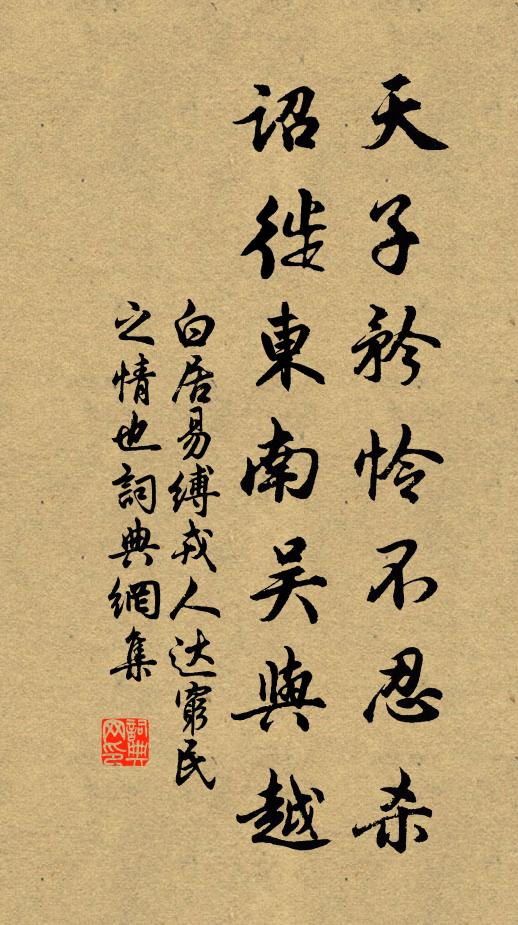 天子矜怜不忍杀
詔徙東南吴與越
白居易縛戎人达窮民
之情也詞典網集
詞典
网印